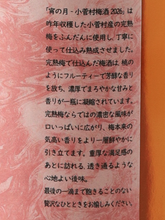 「宵の月・小菅村梅酒 2026」は
昨年収穫した小菅村産の完熟
梅をふんだんに使用し、丁寧に
使って仕込み熟成させました。
完熟梅で仕込んだ梅酒は、桃
のようにフルーティーで芳醇な香り
を放ち、濃厚でまろやかな甘みと
香りが一瓶に凝縮されています。
完熟梅ならではの濃密な風味が
口いっぱいに広がり、梅本来の
気高い香りをより一層鮮やかに
引き立てます。重厚な満足感の
あとに訪れる、透き通るような
心地よい後味。
最後の一滴まで飽きることのない
贅沢なひとときをお愉しみください。